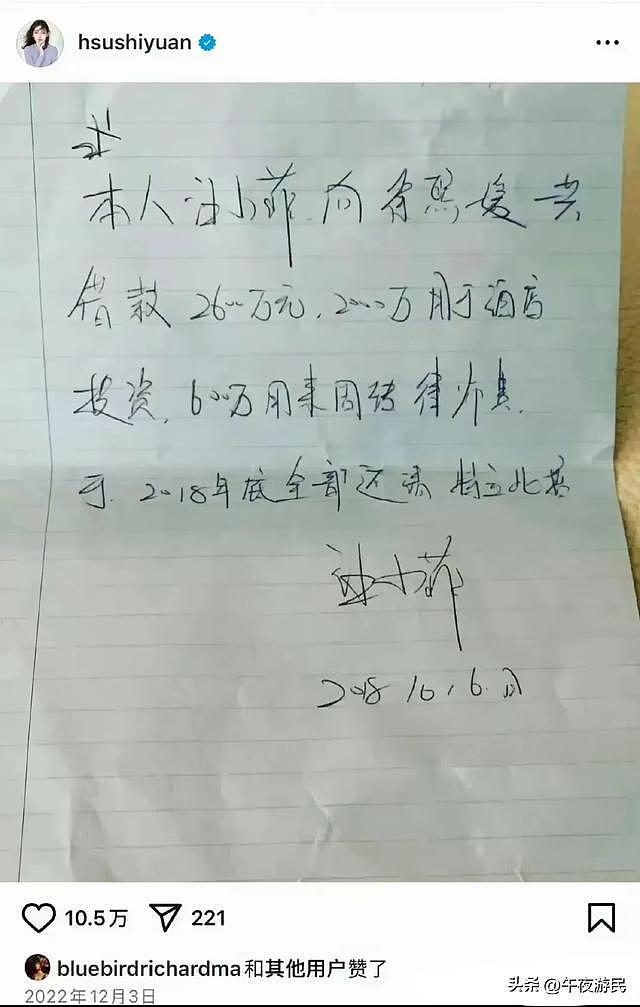 hsushiyuan
本人汪小菲向徐熙媛共
借款2600万元,2000万用于酒店
投资,600万用来周转律师费.
于.2018年底全部还清 特立此据
汪小菲
2018 10,6.日
10.5万 221
bluebirdrichardma和其他用户赞了
2022年12月3日
头条 @午夜游民